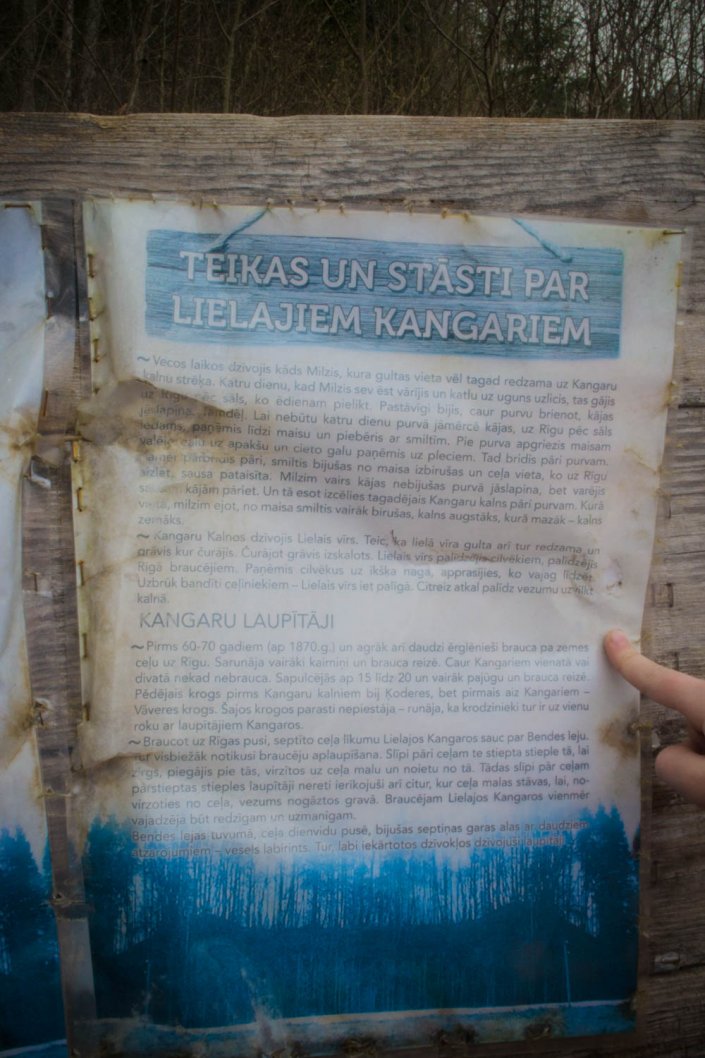 TEIKAS UN STĀSTI PAR
LIELAJIEM KANGARIEM
~ Vecos laikos dzīvojis kāds Milzis, kura gultas vieta vēl tagad redzama uz Kangaru
kalnu strēķa. Katru dienu, kad Milzis sev ēst vārījis un katlu uz uguns uzlicis, tas gājis
uz Rīgu pēc sāls, ko ēdienam pielikt. Pastāvīgi bijis, caur purvu brienot, kājas
jāslapina. Lai nebūtu katru dienu purvā jāmērcē kājas, uz Rīgu pēc sāls
iedams, paņēmis līdzi maisu un piebēris ar smiltīm. Pie purva apgriezis maisam
vaļējo galu uz apakšu un cieto galu paņēmis uz pleciem. Tad bridis pāri purvam.
pāri, smiltis bijušas no maisa izbirušas un ceļa vieta, ko uz Rīgu
aiziet, sausa pataisīta. Milzim vairs kājas nebijušas purvā jāslapina, bet varējis
kājām pāriet. Un tā esot izcēlies tagadējais Kangaru kalns pāri purvam. Kurā
vietā, milzim ejot, no maisa smiltis vairāk birušas, kalns augstāks, kurā mazāk – kalns
zemāks.
~ Kangaru Kalnos dzīvojis Lielais vīrs. Teic, ka lielā vīra gulta arī tur redzama un
grāvis kur čurājis. Čurājot grāvis izskalots. Lielais vīrs palīdzējis cilvēkiem, palīdzējis
Rīgā braucējiem. Paņēmis cilvēkus uz īkšķa naga, apprasījies, ko vajag līdzēt.
Uzbrūk bandīti ceļiniekiem – Lielais vīrs iet palīgā. Citreiz atkal palīdz vezumu uzvilkt
kalnā.
KANGARU LAUPĪTĀJI
~ Pirms 60-70 gadiem (ap 1870.g.) un agrāk arī daudzi ērglēnieši brauca pa zemes
ceļu uz Rīgu. Sarunāja vairāki kaimiņi un brauca reizē. Caur Kangariem vienatā vai
divatā nekad nebrauca. Sapulcējās ap 15 līdz 20 un vairāk pajūgu un brauca reizē.
Pēdējais krogs pirms Kangaru kalniem bij Ķoderes, bet pirmais aiz Kangariem –
Vāveres krogs. Šajos krogos parasti nepiestāja – runāja, ka krodzinieki tur ir uz vienu
roku ar laupītājiem Kangaros.
~ Braucot uz Rīgas pusi, septīto ceļa līkumu Lielajos Kangaros sauc par Bendes leju.
Tur visbiežāk notikusi braucēju aplaupīšana. Slīpi pāri ceļam te stiepta stieple tā, lai
zirgs, piegājis pie tās, virzītos uz ceļa malu un noietu no tā. Tādas slīpi pār ceļam
pārstieptas stieples laupītāji nereti ierīkojuši arī citur, kur ceļa malas stāvas, lai, no-
virzoties no ceļa, vezums nogāztos gravā. Braucējam Lielajos Kangaros vienmēr
vajadzēja būt redzīgam un uzmanīgam.
Bendes lejas tuvumā, ceļa dienvidu pusē, bijušas septiņas garas alas ar daudziem
atzarojumiem – vesels labirints. Tur, labi iekārtotos dzīvokļos dzīvojuši laupītāji.